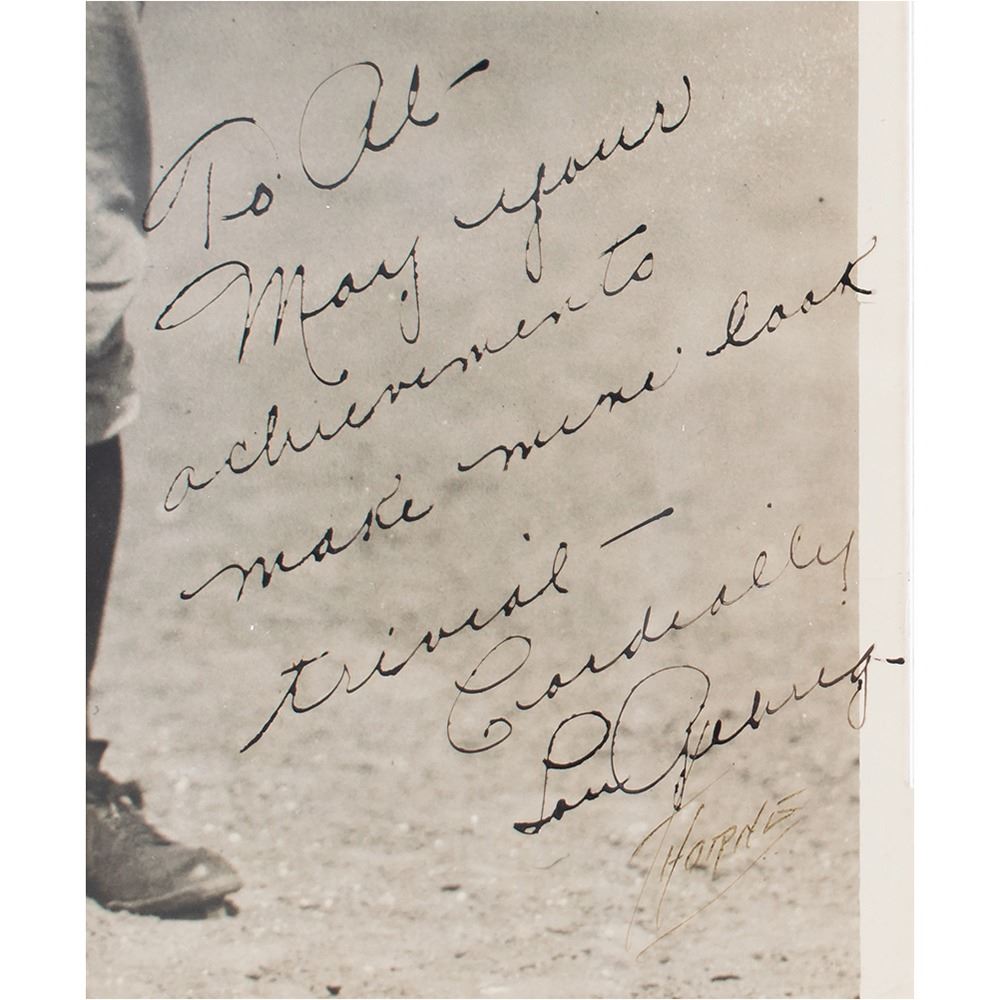 To Al —
May your
achievements
make mine look
trivial —
Cordially
Lou Gehrig
THORNE